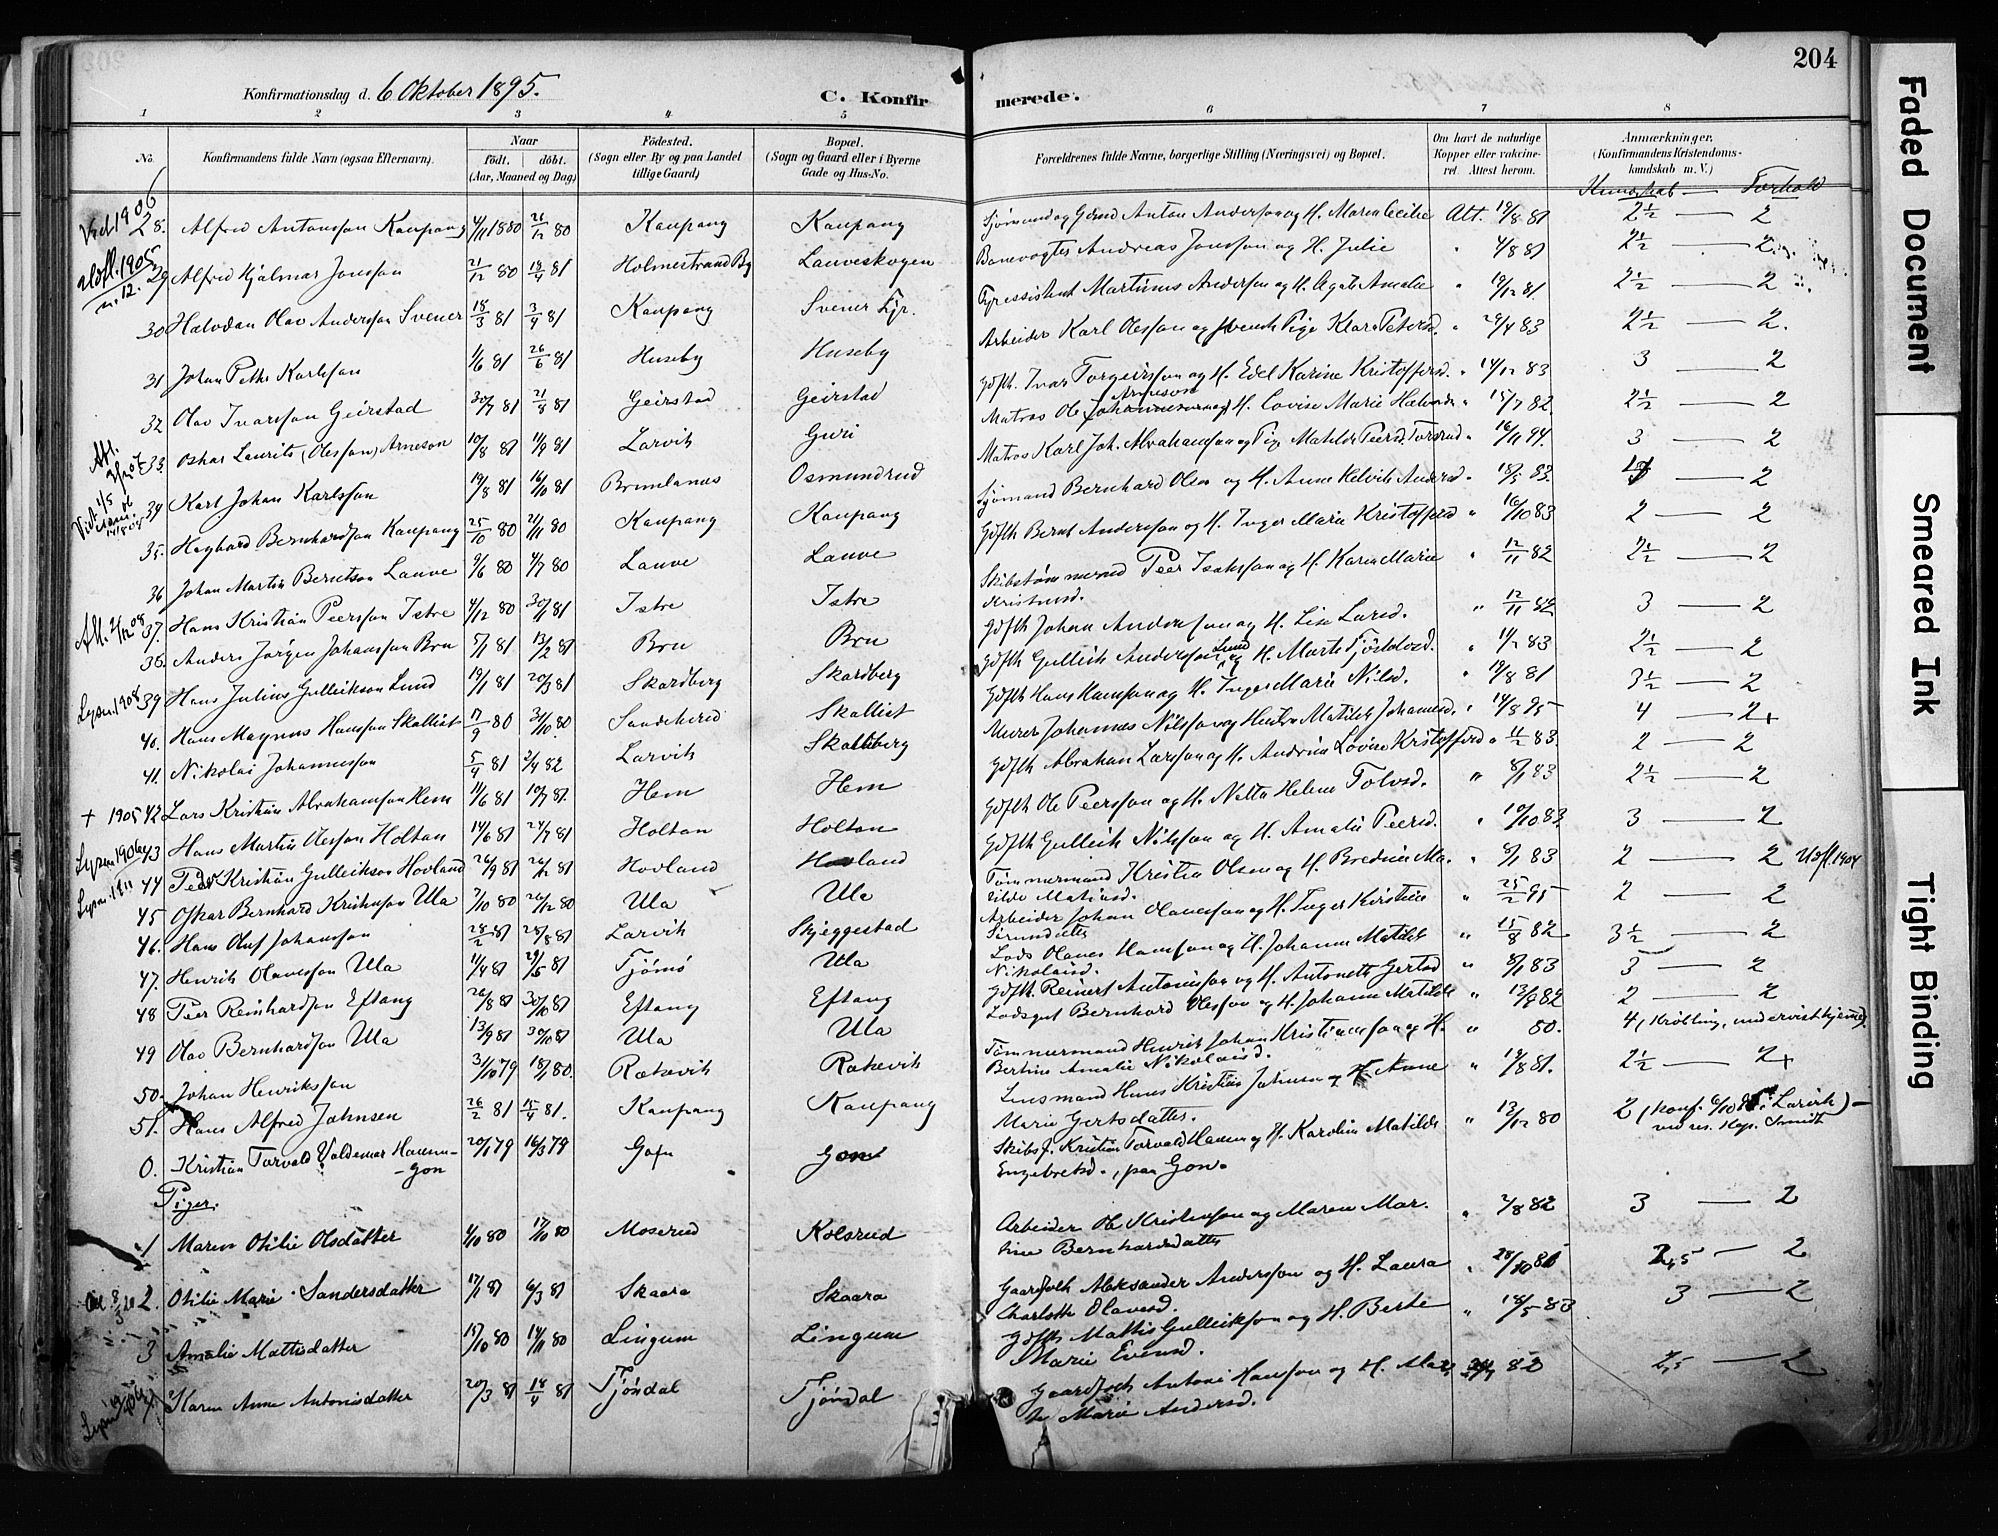 204
Konfirmationsdag d. 6 Oktober 1895.
C. Konfir
merede.
1 2 3 4 5 6 7 8
No.
Konfirmandens fulde Navn (ogsaa Efternavn).
Naar
födt. döbt.
(Aar, Maaned og Dag)
Födested.
(Sogn eller By og paa Landet tillige Gaard)
Bopæl.
(Sogn og Gaard eller i Byerne Gade og Hus-No.
Forældrenes fulde Navne, borgerlige Stilling (Næringsvei) og Bopæl.
Om havt de naturlige Kopper eller vakcineret. Attest herom.
Anmærkninger.
(Konfirmandens Kristendomskundskab m. V.)
Kundskab — Forhold
28. Alfred Antonsson Kaupang 4/11 1880 26/12 80 Kaupang Kaupang Sjömand og Gdmd Anton Andersson og H. Maren Cecilie Att. 19/8 81 2½ — 2
29 Alfred Hjalmar Jonsson 21/12 80 18/4 81 Holmestrand By Lauveskogen Banevogter Andreas Jonsson og H. Julie " 4/8 81 2½ — 2.
30 Halvdan Olav Andersson Svener 18/3 81 3/4 81 Kaupang Svener Fyr. Fyrassistent Martinus Andersson og H. Agate Amalie " 19/12 81 2½ — 2
31 Johan Petter Karlsson 1/6 81 26/6 81 Huseby Huseby Arbeider Karl Olesson og Pige Klara Petersd. " 29/4 83 2½ — 2.
32 Olav Ivarsson Geirstad 30/7 81 21/8 81 Geirstad Geirstad Gdfth. Ivar Torgeirsson og H. Edel Karine Kristoffersd. " 14/12 83 3 2
33. Oskar Laurits (Olesson) Arneson 10/8 81 11/9 81 Larvik Guri Matros Ole Arneson H. Lovise Marie Halvorsd. " 15/7 82. 2½ — 2
34 Karl Johan Karlsson 19/8 81 16/10 81 Brunlanes Osmundrud Matros Karl Joh. Abrahamsson og Pige Matilde Peersd. " 16/11 94. 3 — 2
35. Hagbard Bernhardson Kaupang 25/10 80 21/11 80 Kaupang Kaupang Sjömand Bernhard Olsen og H. Anne Helvik Andersd " 18/5 83. — 2
36 Johan Martin Berntson Lauve 9/6 80 4/7 80 Lauve Lauve Gdfth Bernt Andersson og H. Inger Marie Kristoffersd " 16/10 83 2 — 2
37. Hans Kristian Peersson Istre 4/12 80 30/1 81 Istre Istre Skibstömmermd Peer Isaksson og H. Karen Marie " 12/11 82 2½ — 2
38. Anders Jörgen Johansson Bru 5/1 81 13/2 81 Bru Bru Gdfth Johan Andersson og H. Lise Larsd. " 12/11 82 3 — 2
39 Hans Julius Gulleikson Lund 19/1 81 20/3 81 Skardberg Skardberg Gdfth Gulleik Andersson Lund og H. Marte Fjöstolvsd. " 11/2 83 2½ — 2
40. Hans Magnus Hansson Skallist 17/9 80 31/10 80. Sandeherred Skallist Gdfth Hans Hansson og H. Inger Marie Nilsd. " 19/8 81 3½ — 2
41. Nikolai Johannesson 5/4 81 2/4 82 Larvik Skalleberg Murer Johannes Nilsson og Hustru Matilde Johannesd. " 14/5 95 4 — 2+
42 Lars Kristian Abrahamson Hem 11/6 81 10/7 81. Hem Hem Gdfth Abraham Larsson og H. Andrine Lovise Kristoffersd " 11/2 83. 2 — 2
43 Hans Martin Olesson Holtan 14/6 81 24/7 81 Holtan Holtan Gdfth Ole Peersson og H. Netta Helene Tolvsd. " 8/1 83 2½ — 2
44 Peer Kristian Gulleikson Hovland 26/9 81 Hovland Hovland Gdfth Gulleik Nilsson og H. Amalie Peersd. " 10/10 83. 3 — 2
45 Oskar Bernhard Kristenson Ula 7/10 80 26/12 80 Ula Ula Tömmermand Kristen Olsen og H. Bredine Matilde Matiasd. " 8/1 83 2 — 2 Udfl. 1904
46. Hans Oluf Johansson 28/2 81 28/8 81 Larvik Skjeggestad Arbeider Johan Olavesson og H. Inger Kirstine " 25/2 95 2 — 2
47. Henrik Olavesson Ula 11/4 81 29/5 81 Tjömö Ula Lods Olaves Hansson og H. Johanne Matilde Nikolaisd. " 15/8 82 3½ — 2
48 Peer Reinhardson Eftang 26/8 81 30/10 81 Eftang Eftang Gdfth. Reinert Antonisson og H. Antonette Gertsd " 8/1 83 3 — 2
49 Olav Bernhardson Ula 13/9 81 30/10 81 Ula Ula Lodsgut Bernhard Olesson og H. Johanne Matilde " 13/9 82 2 — 2
50. Johan Henriksson 3/10 79 18/1 80. Rakevik Rakevik Tömmermand Henrik Johan Kristiansson og H. Bertine Amalie Nikolaisd. " 80. 4, (Kröbling, undervist hjemme).
51. Hans Alfred Jahnsen 26/2 81 15/4 81. Kaupang Kaupang Lensmand Hans Kristian Jahnsen og H. Anne Marie Gertsdatter. " 19/8 81. 2½ — 2+
0. Kristian Torvald Valdemar Hansen Gon 20/1 79 16/3 79 Gon Gon Skibsf. Kristian Torvald Hansen og H. Karoline Matilde Engebretsd., paa Gon. " 13/12 80 2 (Konf. 6/10 i Larvik) — ved res. Kap. Smidt
Piger.
1 Maren Otilie Olsdatter 4/10 80 17/10 80 Moserud Kolsrud Arbeider Ole Kristenson og Maren Martine Bernhardsdatter " 2/8 82 3 — 2
2. Otilie Marie Sandersdatter 17/1 81 6/3 81 Skaara Skaara Gaardfolk Aleksander Andersson og H. Laura Charlotte Olavesd. " 28/10 81 2,5 — 2
3 Amalie Mattisdatter 15/10 80 14/11 80 Lingum Lingum Gdfth Mattis Gulleikson og H. Berte Marie Evensd. " 18/5 83 3 — 2
4 Karen Anne Antonisdatter 20/3 81 18/4 81 Tjöndal Tjöndal Gaardfolk Antoni Hansson og H. Marte Marie Andersd. 82 2,5 — 2
Faded Document
Smeared Ink
Tight Binding